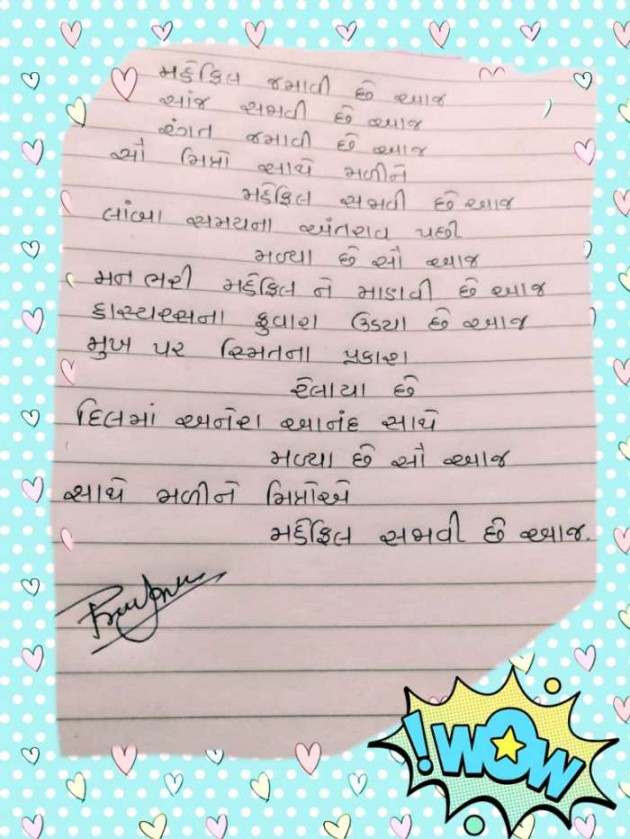 મહેફિલ જમાવી છે આજ
સાંજ સજાવી છે આજ
રંગત જમાવી છે આજ
સૌ મિત્રો સાથે મળીને
મહેફિલ સજાવી છે આજ
લાંબા સમયના અંતરાવ પછી
મળ્યા છે સૌ આજ
મન ભરી મહેફિલ ને માડાવી છે આજ
હાસ્યરસના ફુવારા ઉડયા છે આજ
મુખ પર સ્મિતના પ્રકાશ
રેલાયા છે
દિલમાં અનેરા આનંદ સાથે
મળ્યા છે સૌ આજ
સાથે મળીને મિત્રોએ
મહેફિલ સજાવી છે આજ.
!WOW